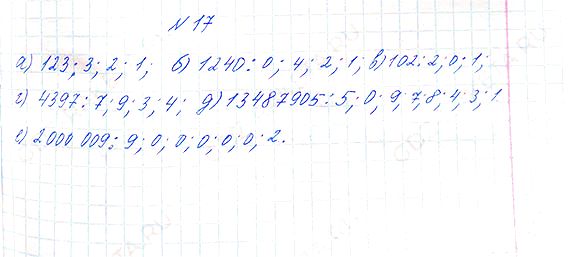 № 17
а) 123: 3; 2; 1; б) 1240: 0; 4; 2; 1; в) 102: 2; 0; 1;
г) 4397: 7; 9; 3; 4; д) 13487905: 5; 0; 9; 7; 8; 4; 3; 1
е) 2000 009: 9; 0; 0; 0; 0; 0; 2.